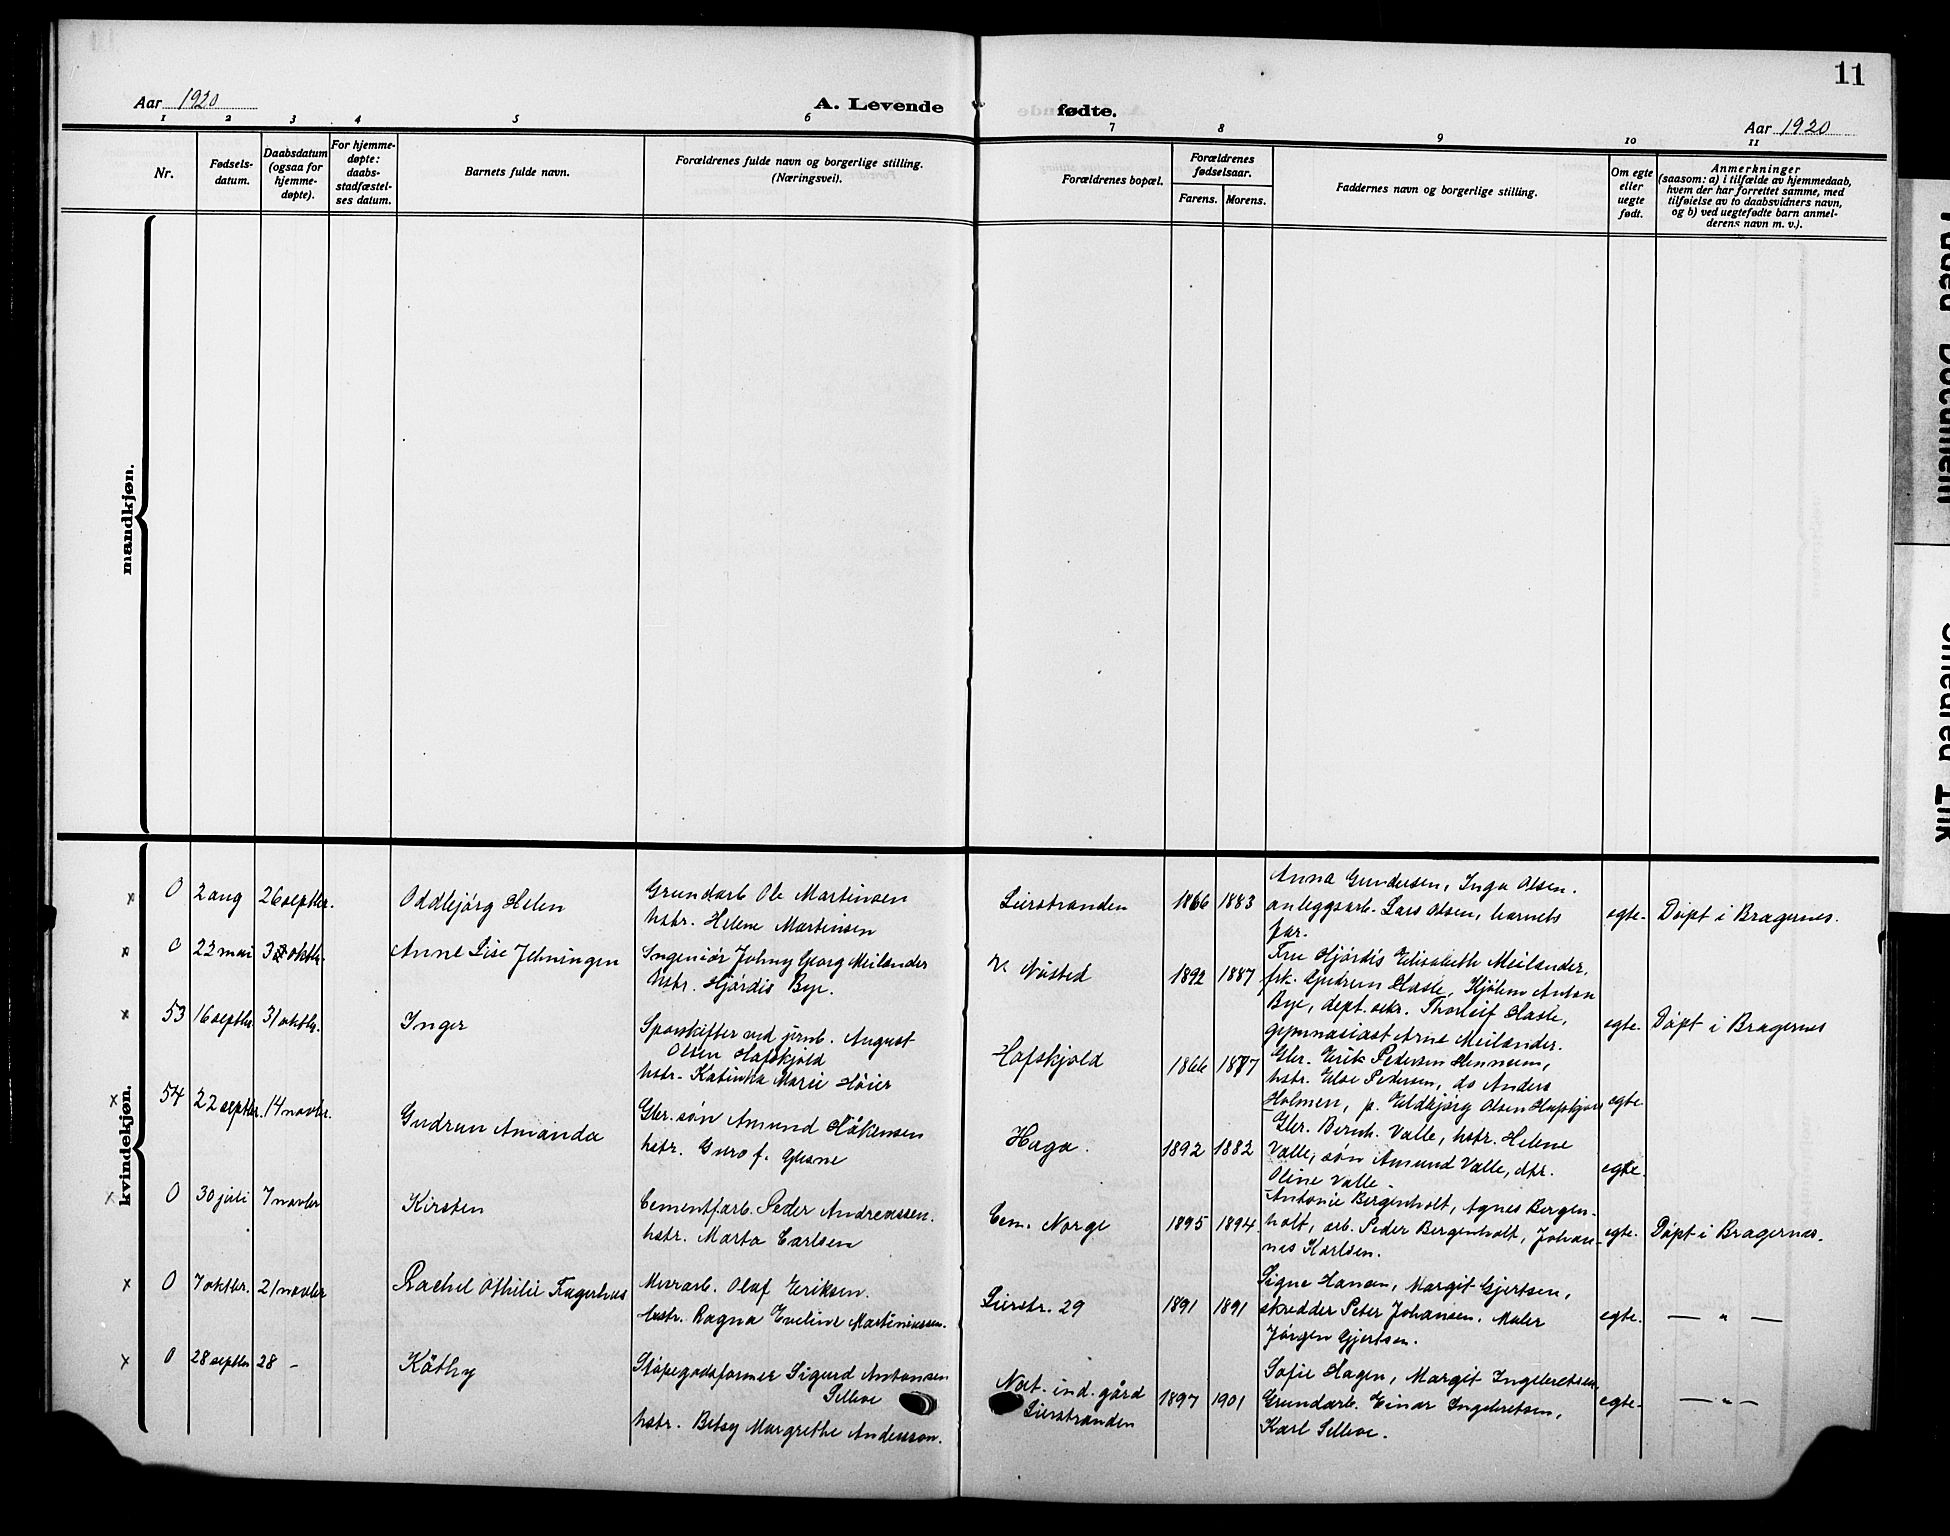 11
Aar 1920
A. Levende fødte.
Aar 1920
1 2 3 4 5 6 7 8 9 10 11
Nr.
Fødsels-
datum.
Daabsdatum
(ogsaa for
hjemme-
døpte).
For hjemme-
døpte:
daabs-
stadfæstel-
ses datum.
Barnets fulde navn.
Forældrenes fulde navn og borgerlige stilling.
(Næringsvei).
Forældrenes bopæl.
Forældrenes
fødselsaar.
Farens. Morens.
Faddernes navn og borgerlige stilling.
Om egte
eller
uegte
født.
Anmerkninger
(saasom: a) i tilfælde av hjemmedaab,
hvem der har forrettet samme, med
tilføielse av to daabsvidners navn,
og b) ved uegtefødte barn anmel-
derens navn m. v.).
mandkjøn.
kvindekjøn.
× 0 2 aug 26 septbr. Oddbjörg Helen
Grundarb. Ole Martinsen
hstr. Helene Martinsen
Lierstranden 1866 1883
Anna Gundersen, Inga Olsen.
anleggsarb. Lars Olsen, barnets
far.
egte- Döpt i Bragernes.
× 0 22 mai 3 oktbr. Anne Lise Jehningen
Ingeniör Johny Georg Meilander
hstr. Hjördis Bye.
N. Nösted 1892 1887
Fru Hjördis Elisabeth Meilander,
frk. Gudrun Hasle, Kjölem Anton
Bye, dept. sekr. Thorleif Hasle,
gymnasiast Arne Meilander.
egte- Döpt i Bragernes
× 53 16 septbr. 31 oktbr. Inger
Sporskifter ved jernb. August
Olsen Hafskjold
hstr. Katinka Marie Höier
Hafskjold 1866 1877
Gbr. Erik Pedersen Hennum,
hstr. Else Pedersen, do Anders
Holmen, p. Eldbjörg Olsen Hafskjold
egte
× 54 22 septbr. 14 novbr. Gudrun Amanda
Gbr. sön Amund Håkensen
hstr. Guro f. Glesne
Haga. 1892 1882
Gbr. Bernh. Valle, hstr. Helene
Valle, sön Amund Valle, dtr.
Oline Valle.
egte
× 0 30 juli 7 novbr Kirsten
Cementfarb. Peder Andreassen.
hstr. Marta Carlsen
Cem. Norge 1895 1894
Antonie Bergenholt, Agnes Bergen-
holt, arb. Peder Bergenholt, Johan-
nes Karlsen.
egte. Döpt i Bragernes.
× 0 7 oktbr. 21 novbr Rachel Othilie Fagerhus
Murarb. Olaf Eriksen.
hstr. Ragna Eveline Martiniussen.
Lierstr. 29 1891 1891
Signe Hansen, Margit Gjertsen,
skredder Peter Johansen, Maler
Jörgen Gjertsen.
egte. — „ —
× 0 28 septbr 28 - Käthy
Stöpegodsformer Sigurd Antonsen
Selleve
hstr. Betsy Margrethe Andersson.
Nat. ind. gård
Lierstranden
1897 1901
Sofie Hagen, Margit Ingebretsen,
Grundarb. Einar Ingebretsen,
Karl Selleve.
egte- — „ —